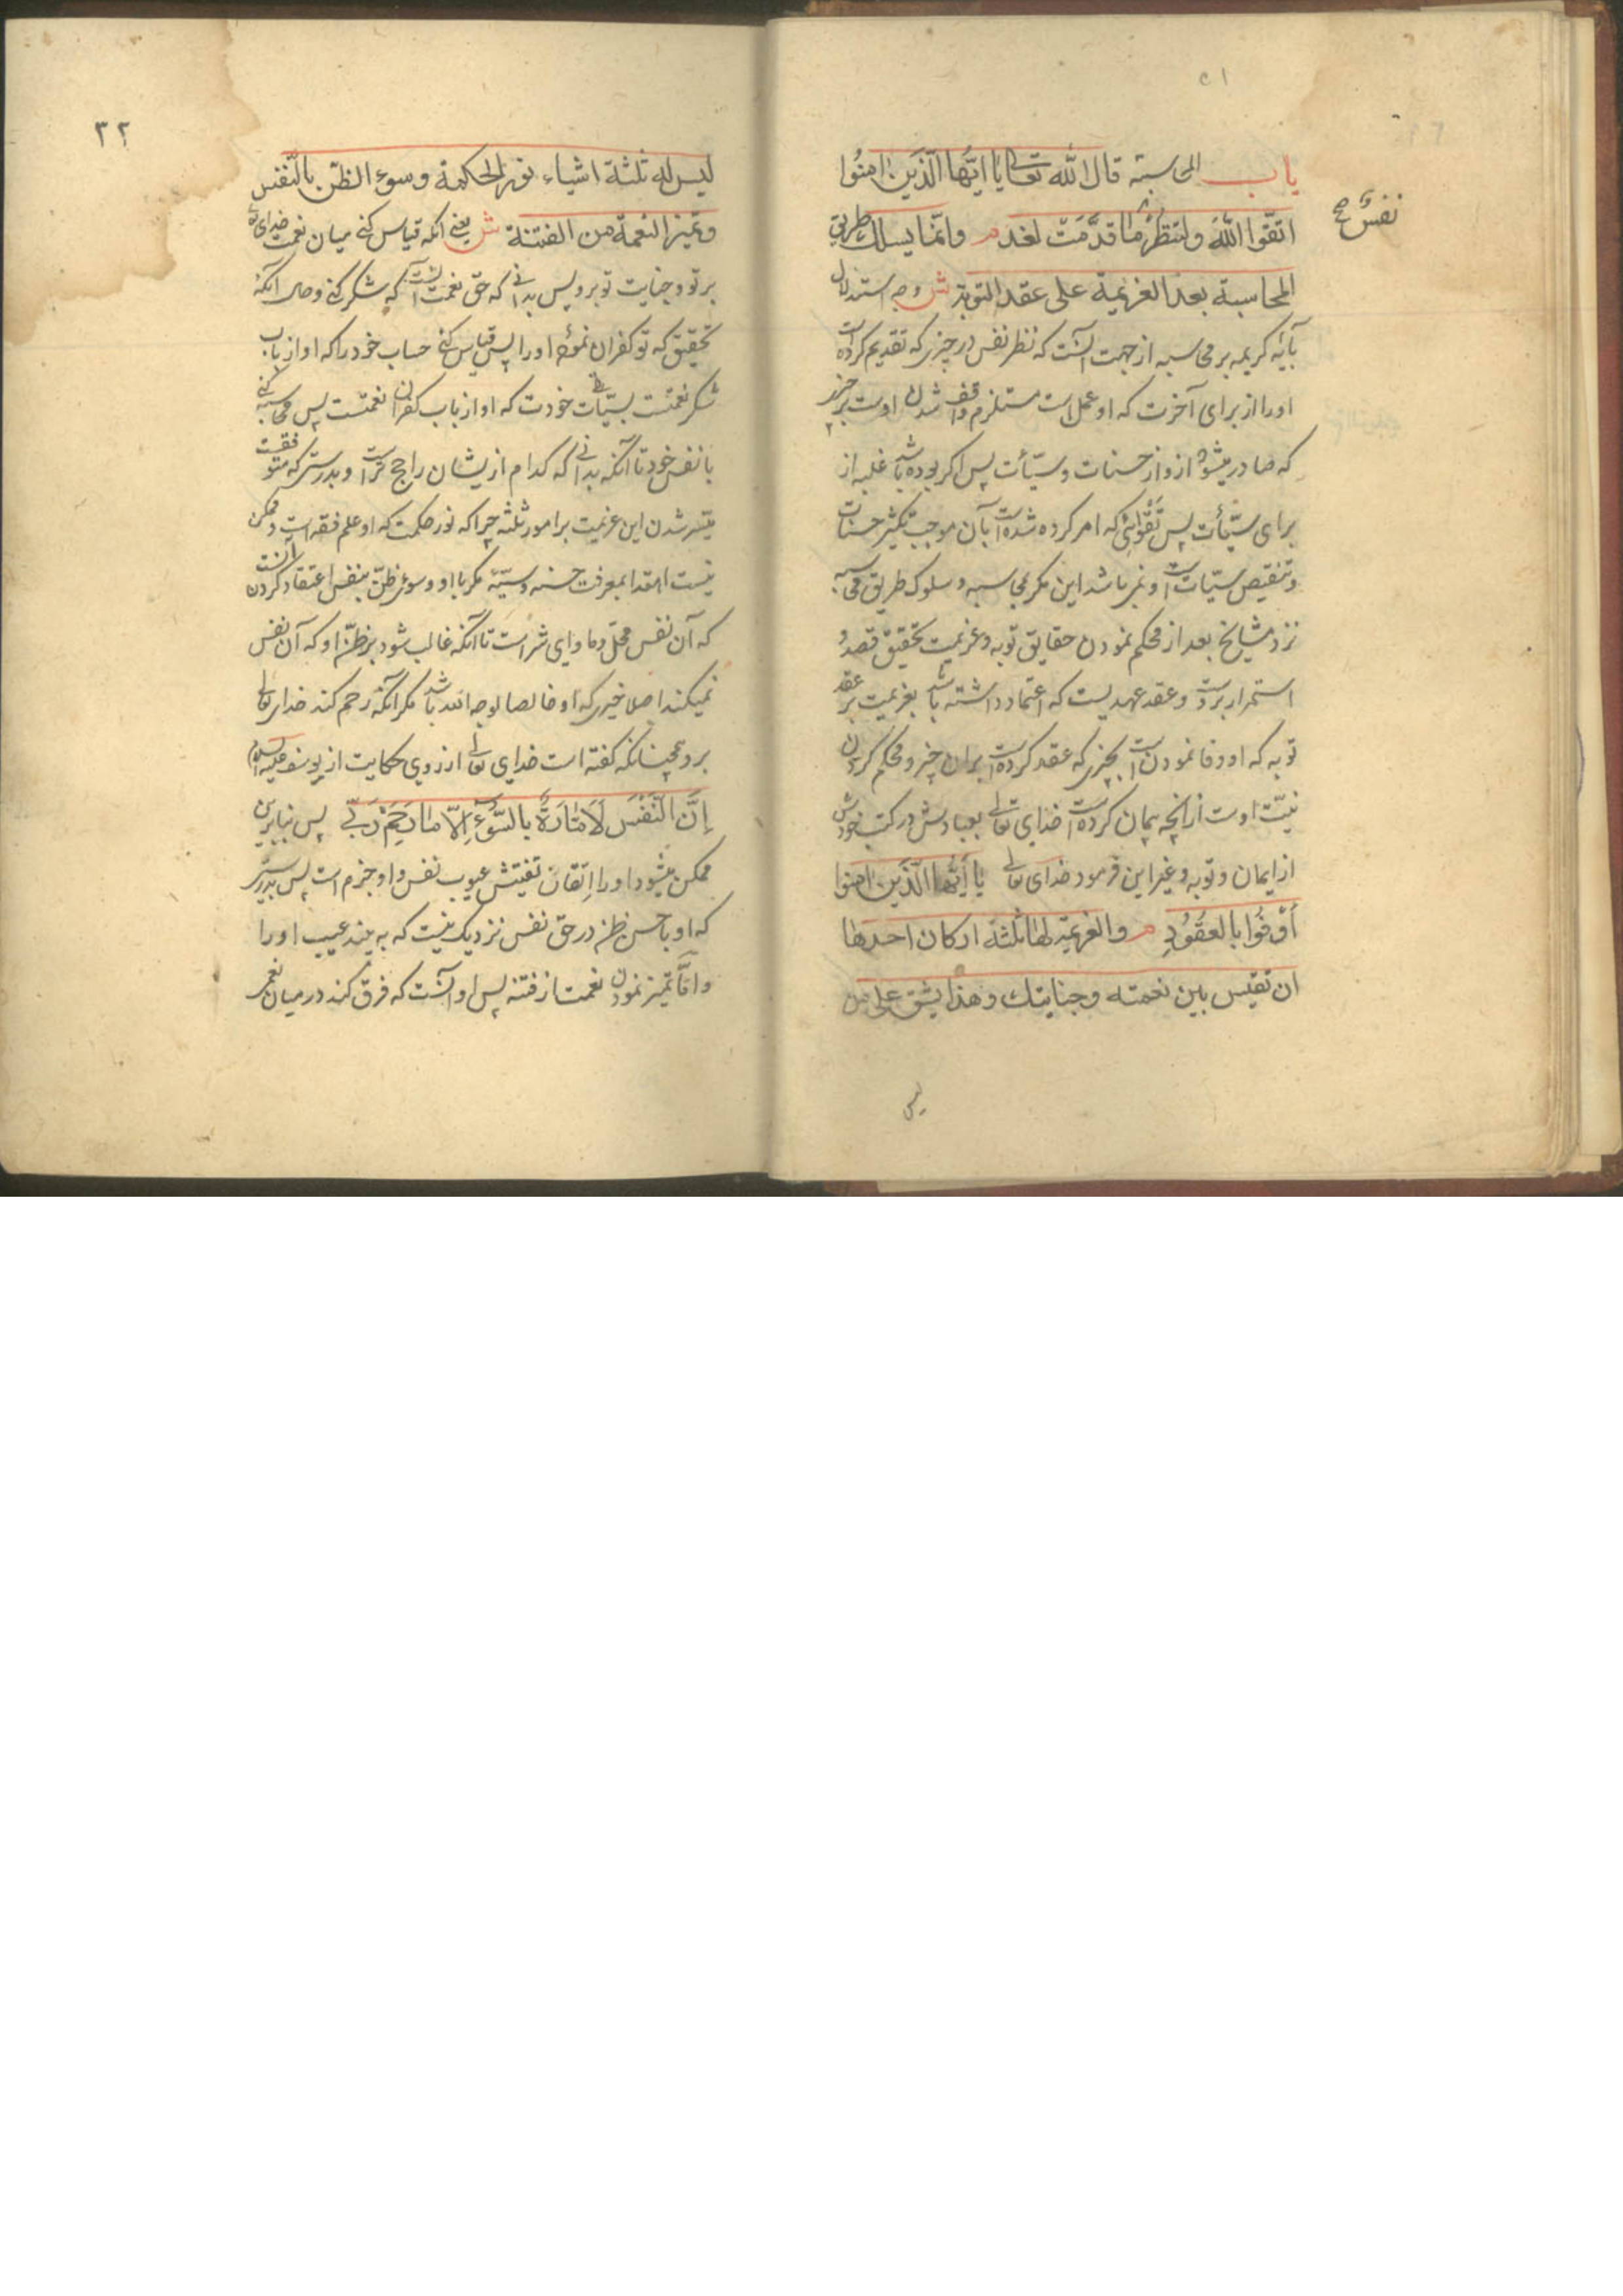 باب المحاسبة قال الله تعالى يا ايّها الّذين امنوا
اتقوا الله ولتنظر ما قدّمت لغد م وانّما يسلك طريق
نفسٌ صح
المحاسبة بعد العزيمة على عقد التوبة ش وجه استدلال
بآیه کریمه بر محاسبه از جهت آنست که نظر نفس در چیزی که تقدیم کرده است
اورا از برای آخرت که او عمل است مستلزم واقف شدن اوست بر چیزی
که صادر میشود ازو از حسنات و سیّآت پس اکر بوده باشد غلبه از
برای سیّآت پس تقوائی که امر کرده شده است بآن موجب تکثیر حسنات
و تنقیص سیّات است و نمی باشد این مکر بمحاسبه و سلوک طریق محاسبه
نزد مشایخ بعد از محکم نمودن حقایق توبه و عزیمت تحقیق قصد و
استمرار بر دست و عقد عهدیست که اعتماد داشته باشد بعزیمت بر عقد
توبه که او وفا نمودن است بچیزی که عقد کرده است بران چیز و محکم کردن
نیّت اوست ازانچه پیمان کرده است خدای تعالی بعبادش در کتب خودش
از ایمان و توبه و غیر این فرمود خدای تعالی يا أيّها الّذين امنوا
أوفوا بالعقود م والعزيمة لها ثلثة اركان احدها
ان تقيس بين نعمته وجنايتك وهذا يشق على من
ليس
٢٢
ليس له ثلثة اشياء نور الحكمة وسوء الظنّ بالنّفس
وتميز النعمة من الفتنة ش یعنی انکه قیاس کنی میان نعمت خدای تعالی
بر تو و جنایت تو برو پس بدانی که حق نعمت آنست که شکر کنی و حال آنکه
تحقیق که تو کفران نموده اورا پس قیاس کنی حساب خود را که او از باب
شکر نعمتست بسیّآت خودت که او از باب کفران نعمتست پس محاسبه کنی
با نفس خود تا آنکه بدانی که کدام ازیشان راجح تر است و بدرستی که متوقفست
میّسر شدن این عزیمت بر امور ثلثه چرا که نور حکمت که او علم فقه است و ممکن
نیست اهتدا بمعرفت حسنه و سیّئه مکر باو و سوء ظنّ بنفس اعتقاد کردن آنست
که آن نفس محلّ و ماوای شر است تا آنکه غالب شود بر ظنّ او که آن نفس
نمیکند اصلا خیری که او خالصا لوجه الله باشد مکر آنکه رحم کند خدای تعالی
برو همچنانکه کفته است خدای تعالی از روی حکایت از یوسف علیه السلام
إنّ النّفس لأمّارة بالسّوء إلّا ما رحم ربّي پس بنابرین
ممکن میشود اورا اتقان تفتیش عیوب نفس و او جزم است پس بدرستی
که او با حسن ظن در حق نفس نزدیک نیست که به بیند عیب اورا
وامّا تمیز نمودن نعمت از فتنه پس او آنست که فرق کند در میان نعمتی